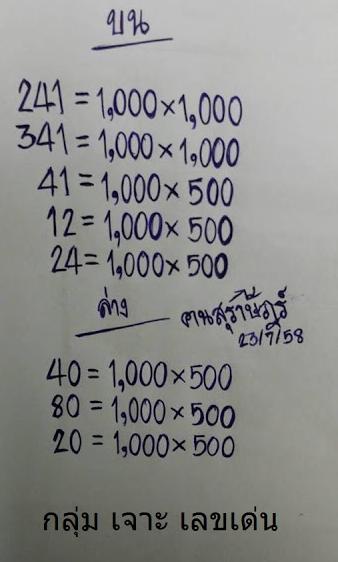 บน
241 = 1,000 × 1,000
341 = 1,000 × 1,000
41 = 1,000 × 500
12 = 1,000 × 500
24 = 1,000 × 500
ล่าง
23/7/58
40 = 1,000 × 500
80 = 1,000 × 500
20 = 1,000 × 500
กลุ่ม เจาะ เลขเด่น